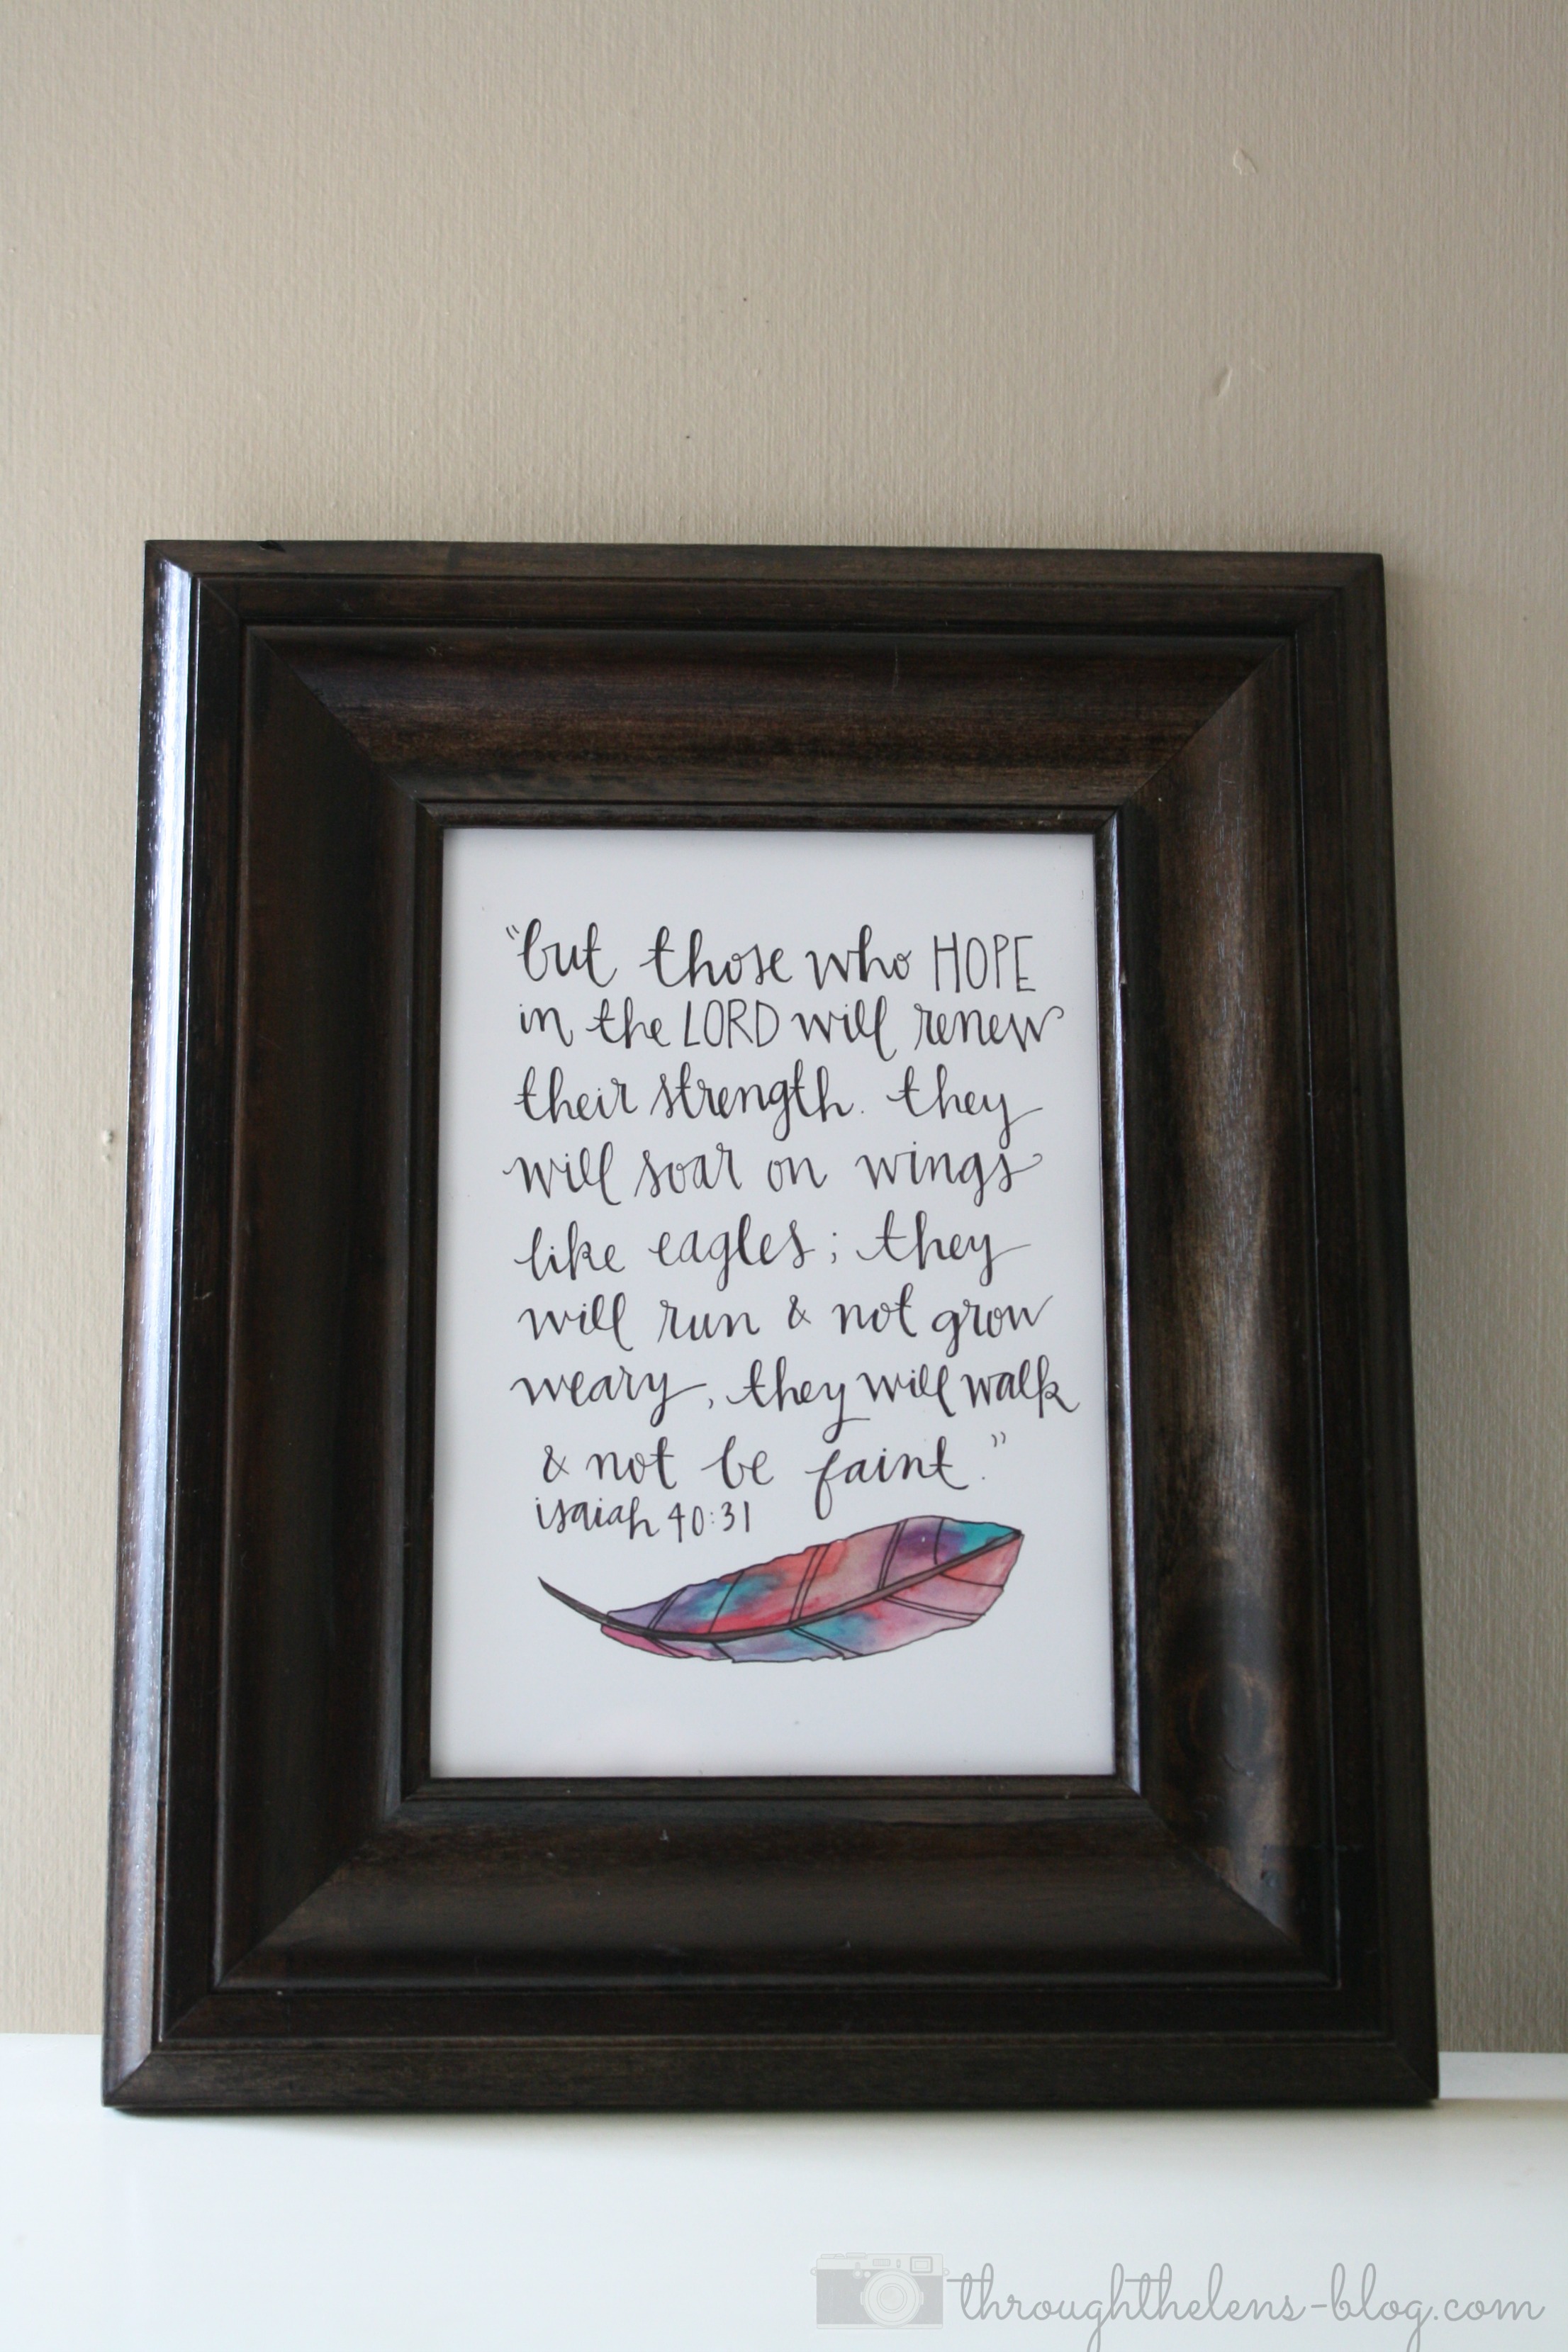 "but those who HOPE
in the LORD will renew
their strength. they
will soar on wings
like eagles; they
will run & not grow
weary, they will walk
& not be faint."
isaiah 40:31
throughthelens-blog.com